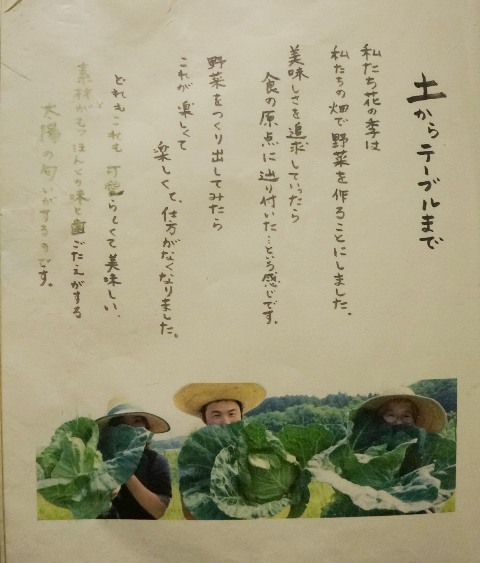 土からテーブルまで
私たち花の季は
私たちの畑で野菜を作ることにしました。
美味しさを追求していったら
食の原点に辿り付いた…という感じです。
野菜をつくり出してみたら
これが楽しくて
楽しくて、仕方がなくなりました。
どれもこれも可愛らしくて美味しい、
素材がもつほんとの味と歯ごたえがする
太陽の匂いがするのです。